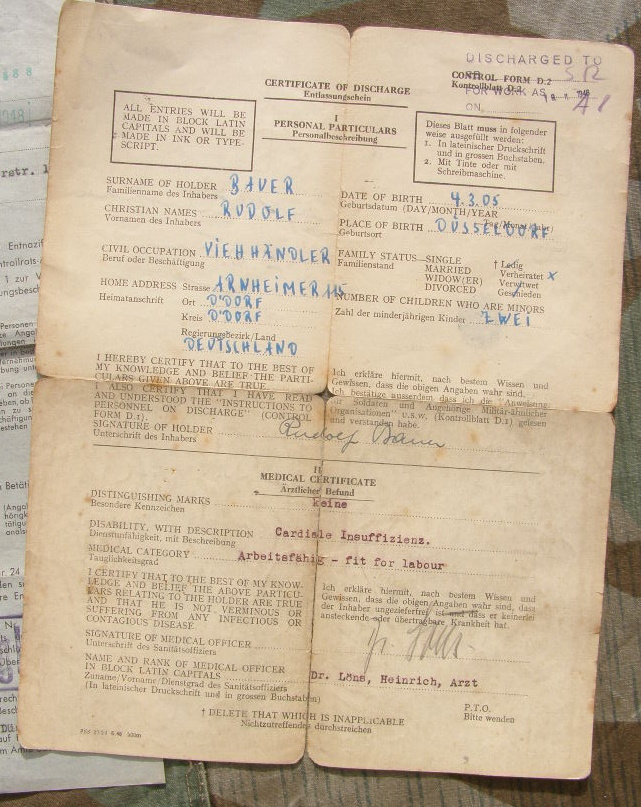 DISCHARGED TO
CERTIFICATE OF DISCHARGE
Entlassungschein
CONTROL FORM D.2
Kontrollblatt D.2
FOR WORK AS
ON
ALL ENTRIES WILL BE
MADE IN BLOCK LATIN
CAPITALS AND WILL BE
MADE IN INK OR TYPE-
SCRIPT.
I
PERSONAL PARTICULARS
Personalbeschreibung
Dieses Blatt muss in folgender
weise ausgefüllt werden:
1. In lateinischer Druckschrift
und in grossen Buchstaben.
2. Mit Tinte oder mit
Schreibmaschine.
SURNAME OF HOLDER BAUER
Familienname des Inhabers
CHRISTIAN NAMES RUDOLF
Vornamen des Inhabers
CIVIL OCCUPATION VIEHHÄNDLER
Beruf oder Beschäftigung
HOME ADDRESS Strasse ARNHEIMER
Heimatanschrift Ort D'DORF
Kreis D'DORF
Regierungsbezirk/Land
DEUTSCHLAND
DATE OF BIRTH 4.3.05
Geburtsdatum (DAY/MONTH/YEAR
PLACE OF BIRTH DÜSSELDORF
Geburtsort
FAMILY STATUS—SINGLE † Ledig
Familienstand MARRIED Verheiratet x
WIDOW(ER) Verwitwet
DIVORCED Geschieden
NUMBER OF CHILDREN WHO ARE MINORS
Zahl der minderjährigen Kinder ZWEI
I HEREBY CERTIFY THAT TO THE BEST OF
MY KNOWLEDGE AND BELIEF THE PARTI-
CULARS GIVEN ABOVE ARE TRUE.
I ALSO CERTIFY THAT I HAVE READ
AND UNDERSTOOD THE "INSTRUCTIONS TO
PERSONNEL ON DISCHARGE" (CONTROL
FORM D.1)
SIGNATURE OF HOLDER Rudolf Bauer
Unterschrift des Inhabers
Ich erkläre hiermit, nach bestem Wissen und
Gewissen, dass die obigen Angaben wahr sind.
Ich bestätige ausserdem dass ich die "Anweisung
Soldaten und Angehörige Militär-ähnlicher
Organisationen" u.s.w. (Kontrollblatt D.1) gelesen
und verstanden habe.
II
MEDICAL CERTIFICATE
Ärztlicher Befund
DISTINGUISHING MARKS keine
Besondere Kennzeichen
DISABILITY, WITH DESCRIPTION Cardiale Insuffizienz.
Dienstunfähigkeit, mit Beschreibung
MEDICAL CATEGORY Arbeitsfähig - fit for labour
Tauglichkeitsgrad
I CERTIFY THAT TO THE BEST OF MY KNOW-
LEDGE AND BELIEF THE ABOVE PARTICU-
LARS RELATING TO THE HOLDER ARE TRUE
AND THAT HE IS NOT VERMINOUS OR
SUFFERING FROM ANY INFECTIOUS OR
CONTAGIOUS DISEASE.
Ich erkläre hiermit, nach bestem Wissen und
Gewissen, dass die obigen Angaben wahr sind, dass
der Inhaber ungezieferfrei ist und dass er keinerlei
ansteckende oder übertragbare Krankheit hat.
SIGNATURE OF MEDICAL OFFICER
Unterschrift des Sanitätsoffiziers
NAME AND RANK OF MEDICAL OFFICER
IN BLOCK LATIN CAPITALS Dr. Löns, Heinrich, Arzt
Zuname/Vorname/Dienstgrad des Sanitätsoffiziers
(In lateinischer Druckschrift und in grossen Buchstaben)
P.T.O.
Bitte wenden
† DELETE THAT WHICH IS INAPPLICABLE
Nichtzutreffendes durchstreichen